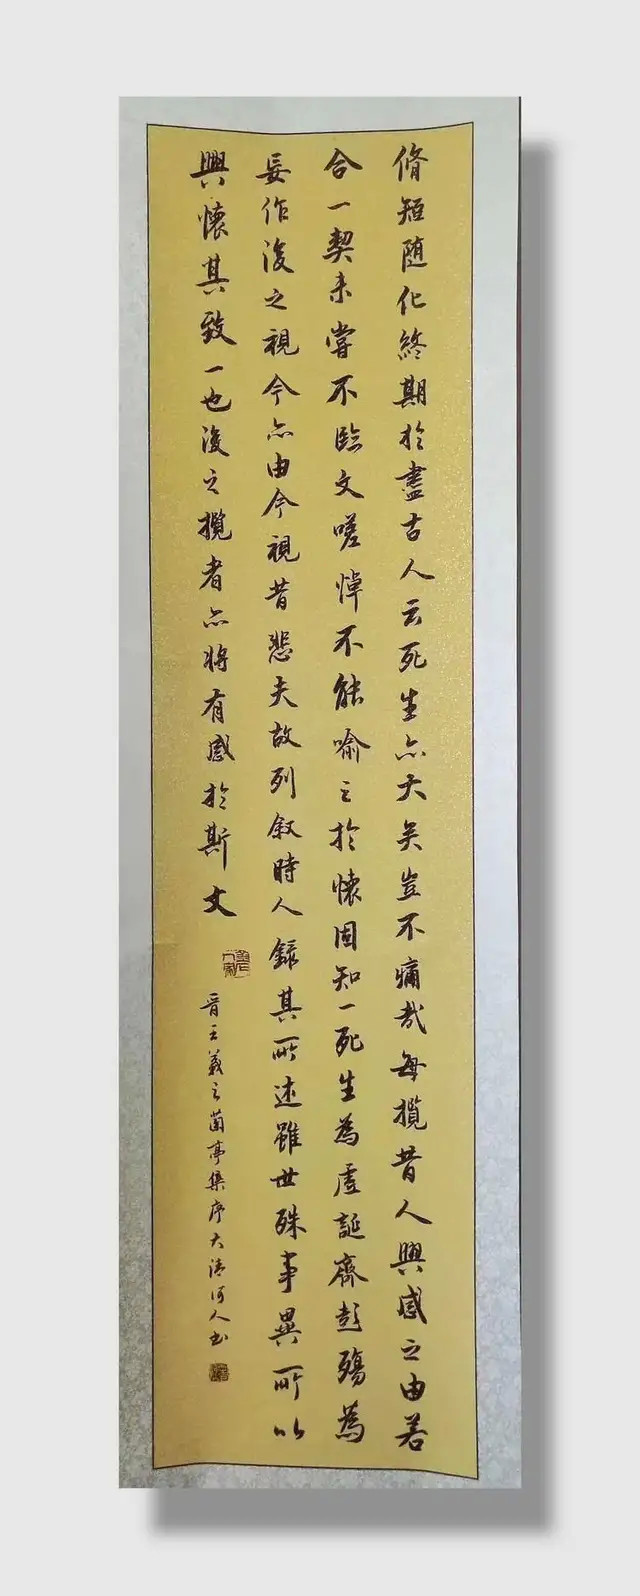 脩短隨化終期於盡古人云死生亦大矣豈不痛哉每攬昔人興感之由若
合一契未嘗不臨文嗟悼不能喻之於懷固知一死生為虛誕齊彭殤為
妄作後之視今亦由今視昔悲夫故列叙時人錄其所述雖世殊事異所以
興懷其致一也後之攬者亦將有感於斯文
晉王羲之蘭亭集序大清河人書